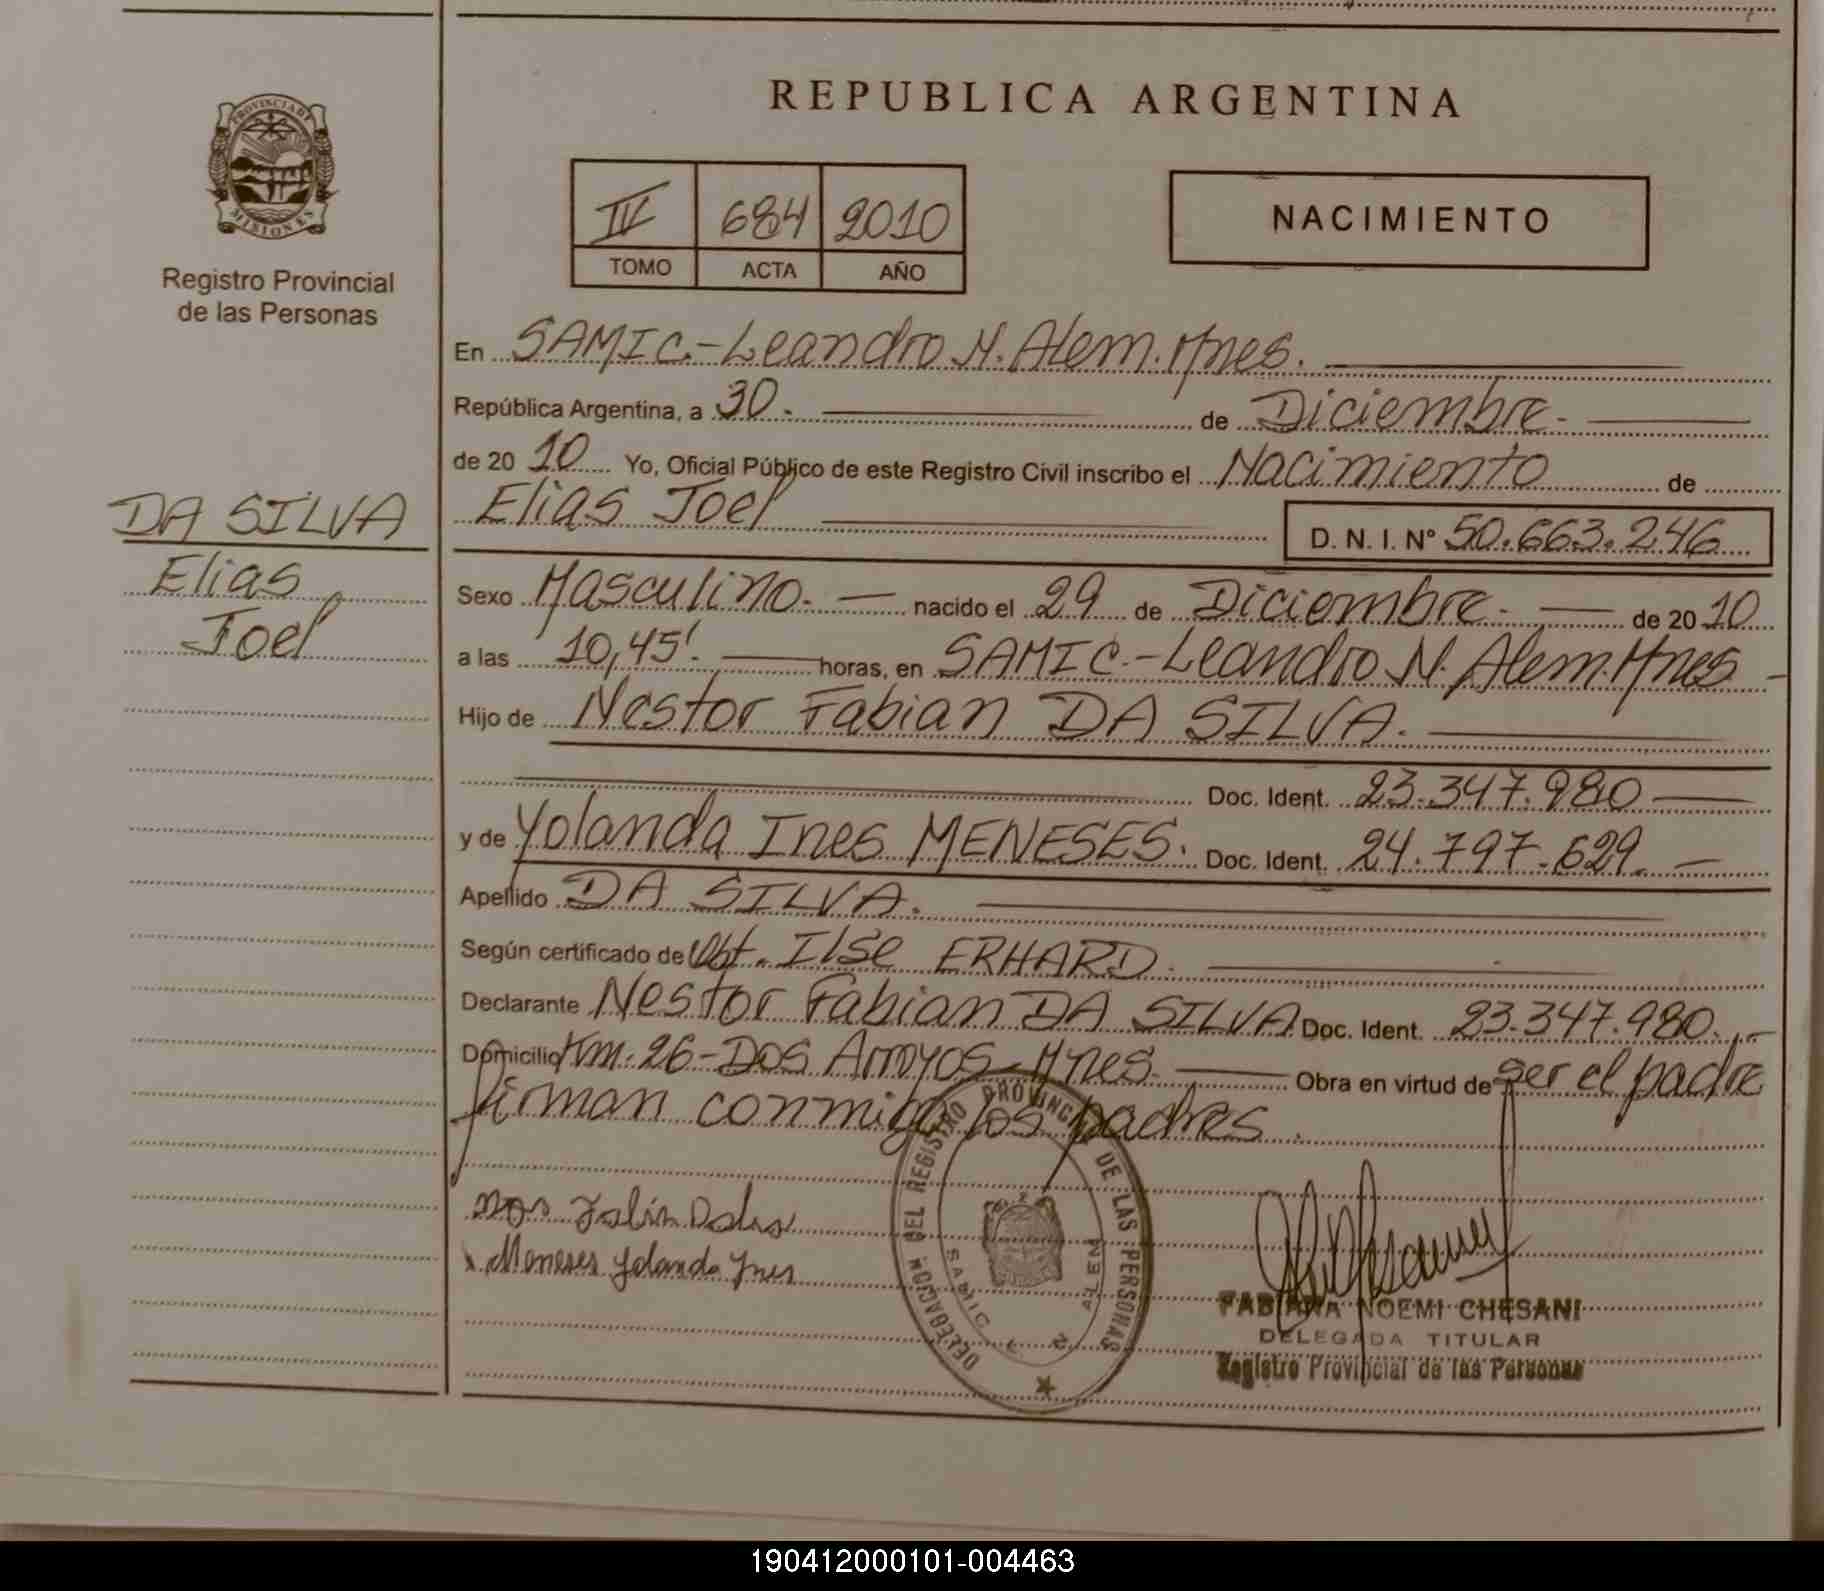 REPUBLICA ARGENTINA
PROVINCIA DE MISIONES
Registro Provincial
de las Personas
IV 684 2010
TOMO ACTA AÑO
NACIMIENTO
En SAMIC.-Leandro N. Alem. Mnes.
República Argentina, a 30. de Diciembre.
de 20 10 Yo, Oficial Público de este Registro Civil inscribo el Nacimiento de
Elias Joel
D. N. I. Nº 50.663.246
DA SILVA
Elias
Joel
Sexo Masculino. nacido el 29 de Diciembre. de 20 10
a las 10,45'. horas, en SAMIC.-Leandro N. Alem. Mnes
Hijo de Nestor Fabian DA SILVA.
Doc. Ident. 23.347.980
y de Yolanda Ines MENESES. Doc. Ident. 24.797.629.
Apellido DA SILVA.
Según certificado de Obt. Ilse ERHARD.
Declarante Nestor Fabian DA SILVA. Doc. Ident. 23.347.980.
Domicilio Km. 26-Dos Arroyos-Mnes. Obra en virtud de ser el padre
firman conmigo los padres.
Meneses Yolanda Ynes
DELEGACION DEL REGISTRO PROVINCIAL DE LAS PERSONAS
SAMIC L N ALEM
FABIANA NOEMI CHESANI
DELEGADA TITULAR
Registro Provincial de las Personas
190412000101-004463